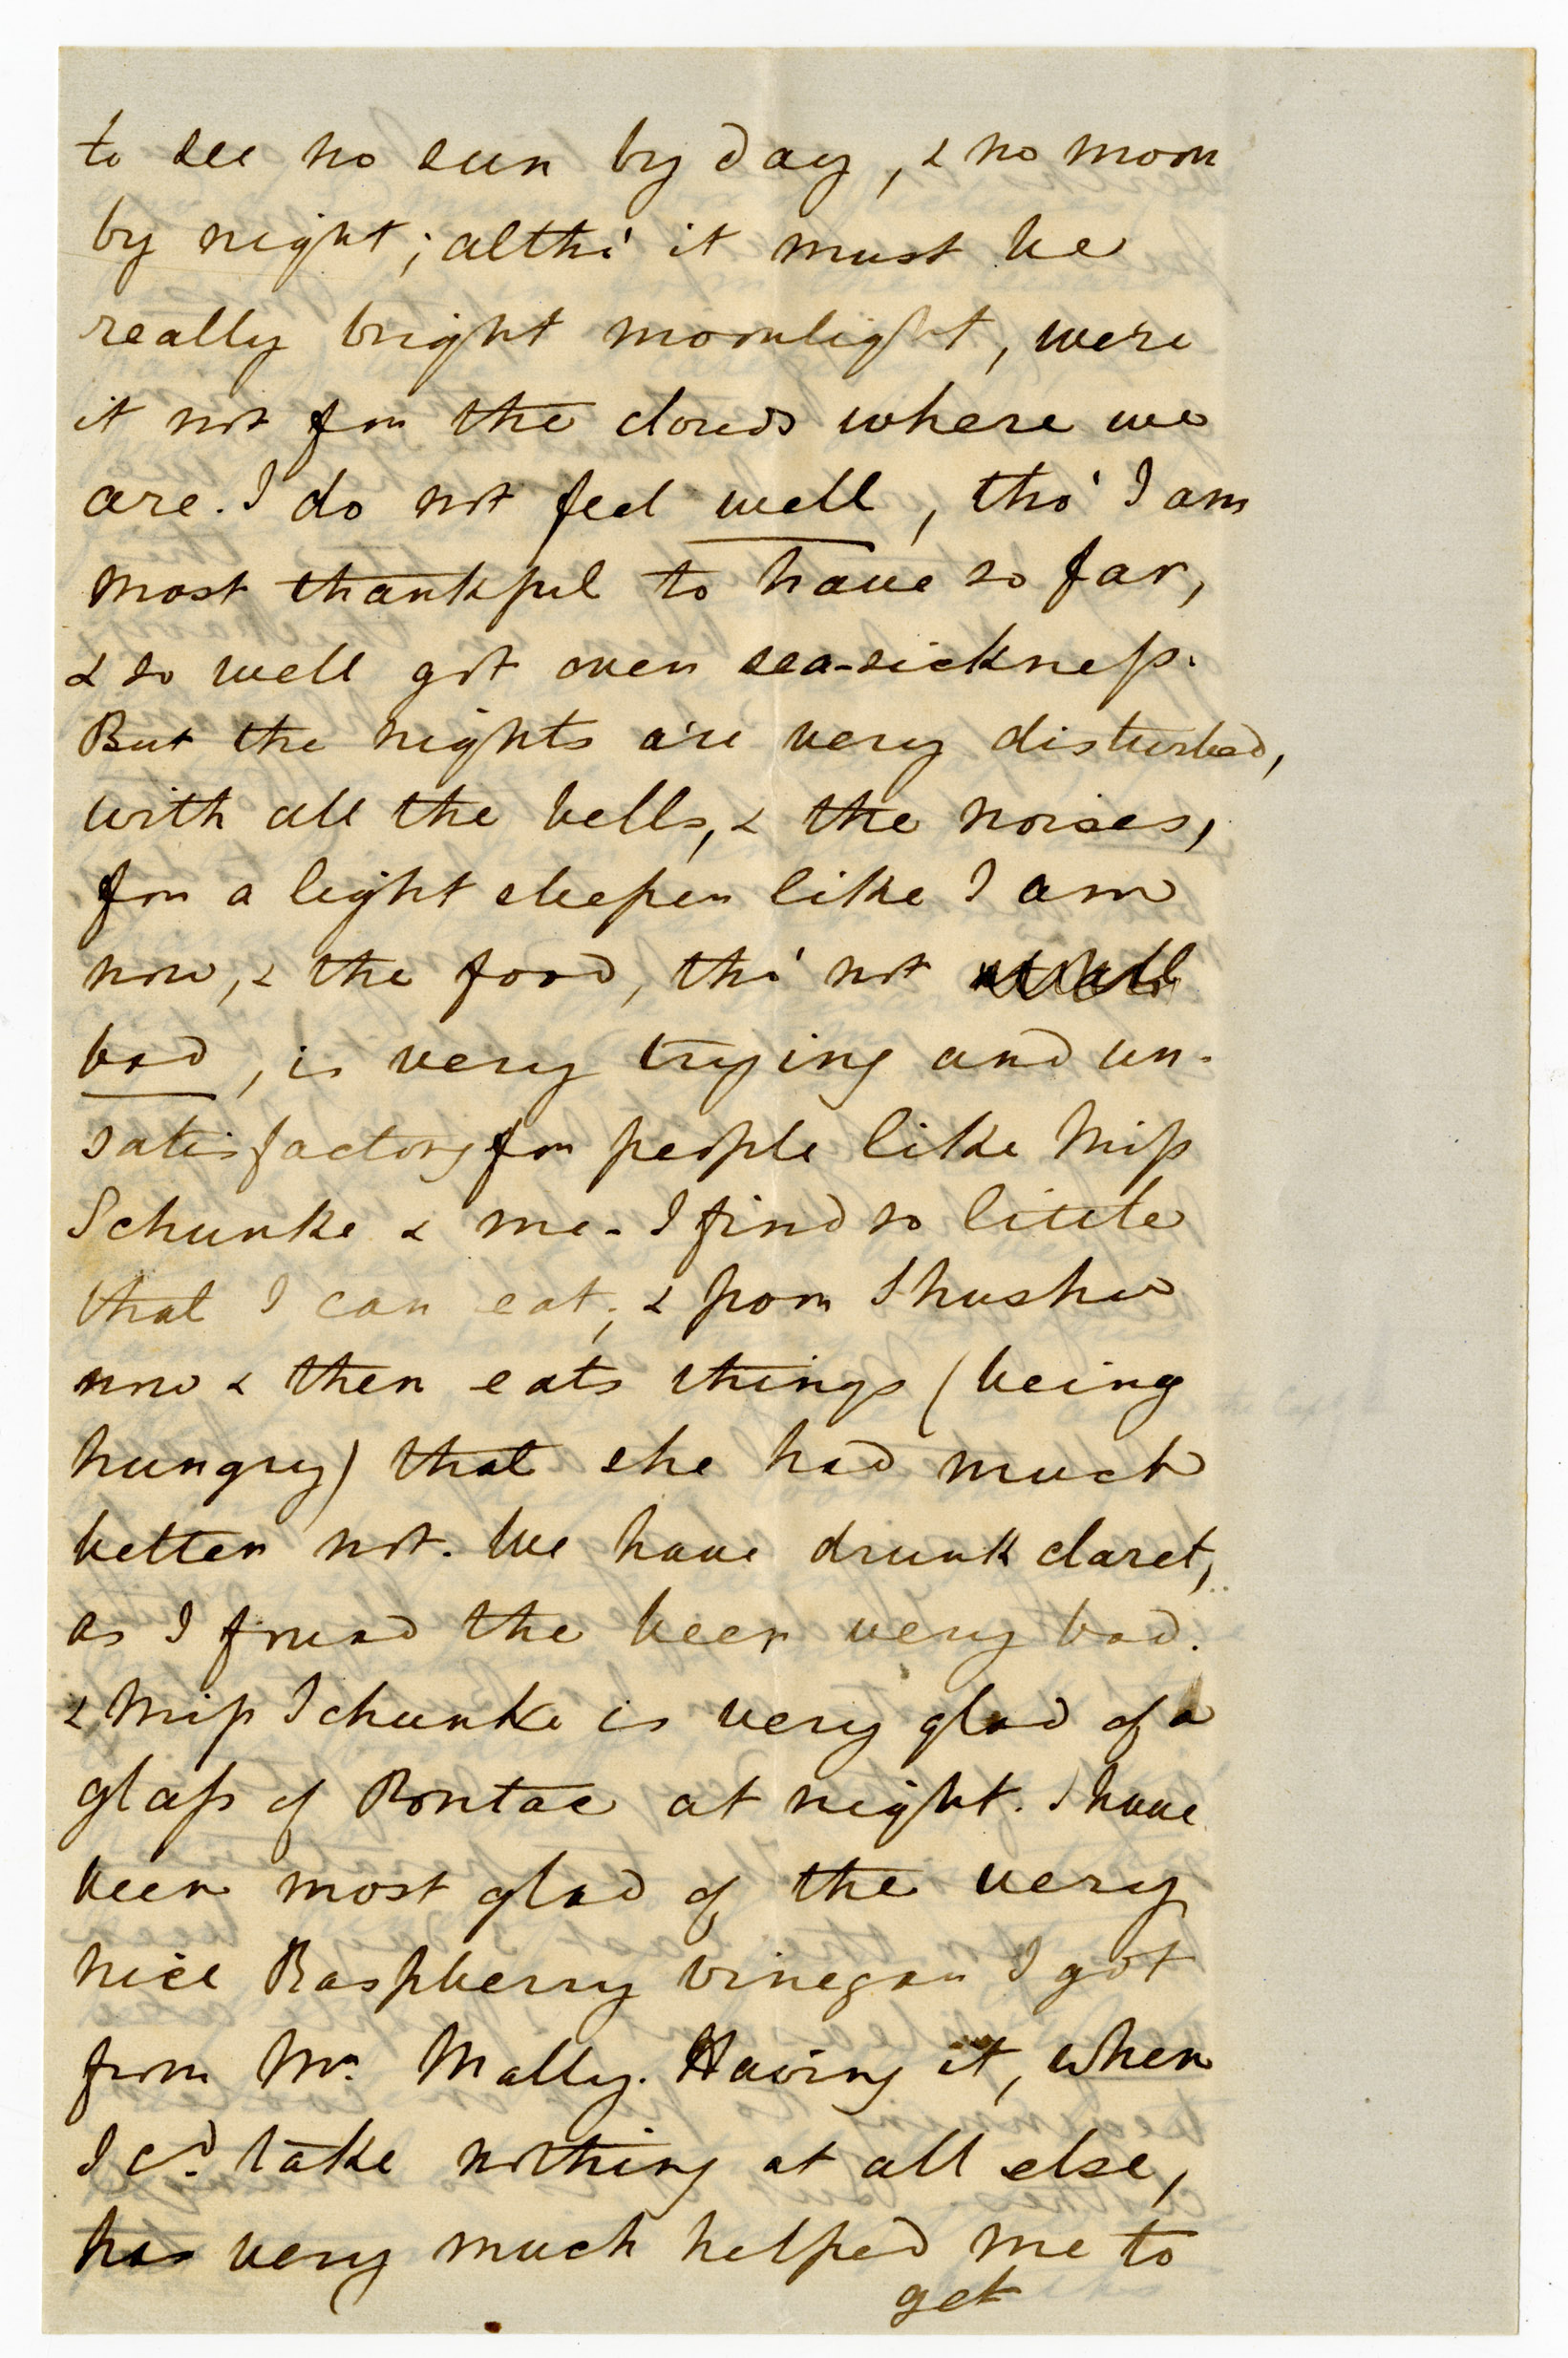 to see no sun by day, & no moon
by night; altho' it must be
really bright moonlight, were
it not for the clouds where we
are. I do not feel well, tho' I am
most thankful to have so far,
& so well got over sea-sickness.
But the nights are very disturbed,
with all the bells, & the noises,
for a light sleeper like I am
now, & the food, tho' not
bad, is very trying and un-
satisfactory for people like Miss
Schunke & me - I find so little
that I can eat; & poor Shushu
now & then eats things (being
hungry) that she had much
better not. We have drunk claret,
as I found the beer very bad.
& Miss Schunke is very glad of a
glass of Pontac at night. I have
been most glad of the very
nice Raspberry vinegar I got
from Mr. Mally. Having it, when
I cd. take nothing at all else,
has very much helped me to
get